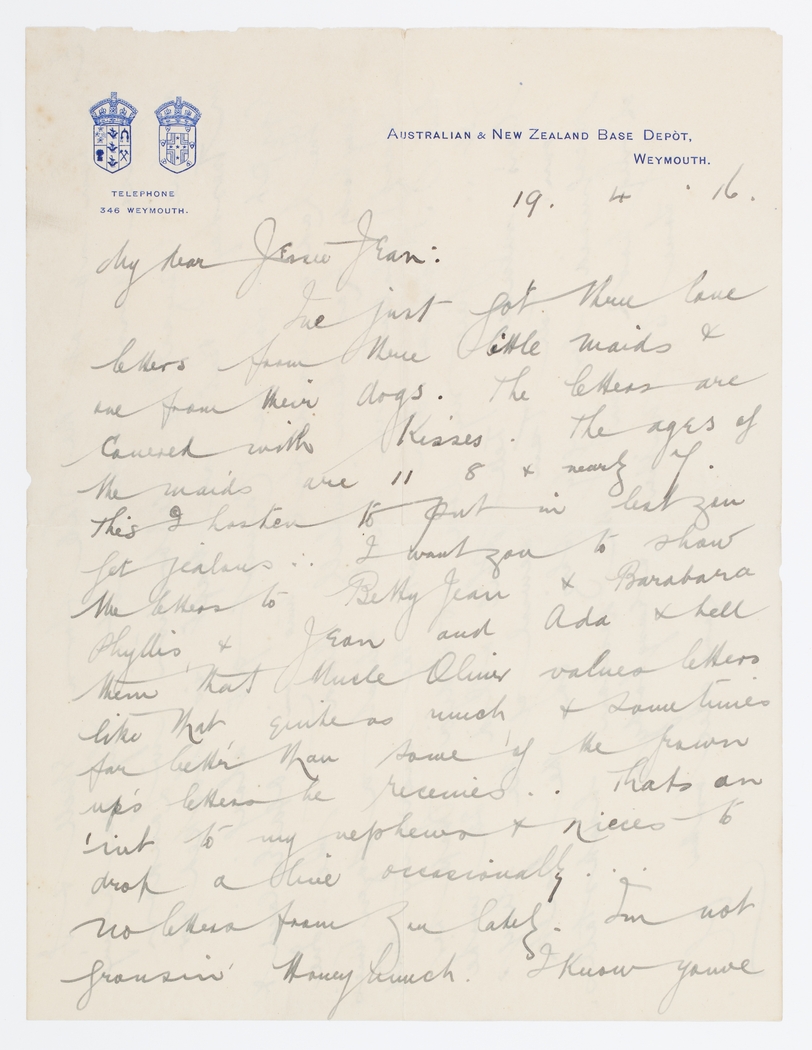 AUSTRALIAN & NEW ZEALAND BASE DEPÒT,
WEYMOUTH.
TELEPHONE
346 WEYMOUTH.
19. 4. 16.
My dear Jessie Jean:
I've just got three love
letters from three little maids &
one from their dogs. The letters are
covered with Kisses. The ages of
the maids are 11 8 & nearly 7.
This I hasten to put in lest you
get jealous... I want you to show
the letters to Betty Jean & Barabara
Phyllis & Jean and Ada & tell
them that Uncle Oliver values letters
like that quite as much & sometimes
far bett'r than some of the grown
up's letters he receives.. Thats an
'int to my nephews & nieces to
drop a line occasionally...
No letters from you lately. I'm not
grousin' Honey bunch. I know youve